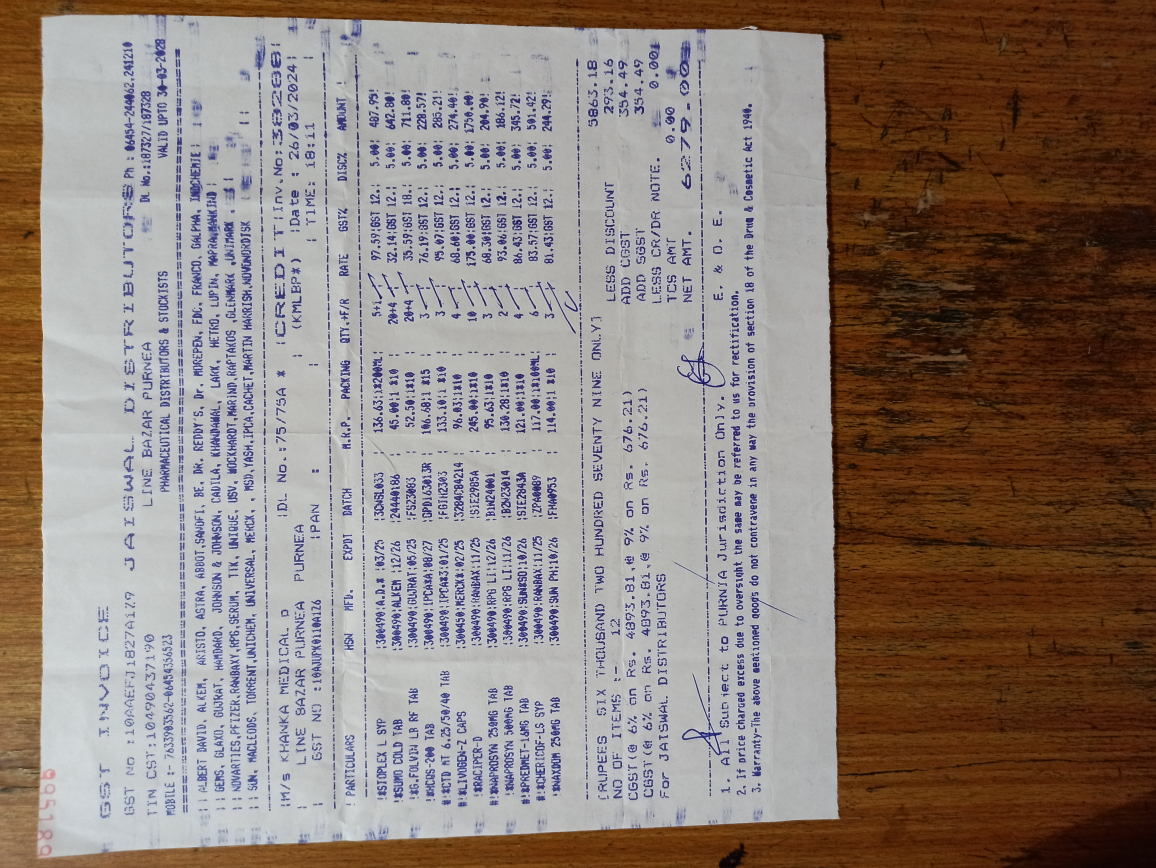 GST INVOICE JAISWAL DISTRIBUTORS Ph : 06454-244062,241210
GST No :10AAEFJ1827A1Z9 LINE BAZAR PURNEA DL No.:187327/187328
TIN CST:10490437190 PHARMACEUTICAL DISTRIBUTORS & STOCKISTS VALID UPTO 30-03-2028
MOBILE :- 7633903562-06454356523
ALBERT DAVID, ALKEM, ARISTO, ASTRA, ABBOT,SANOFI, BE, DR. REDDY'S, Dr. MOREPEN, FDC, FRANCO, GALPHA, INDCHEMIE
GEMS, GLAXO, GUJRAT, HAMDARD, JOHNSON & JOHNSON, CADILA, KHANDAWAL, LARK, HETRO, LUPIN, MAPRA,MANKIND
NOWARTIES,PFIZER,RANBAXY,RPG,SERUM, TTK, UNIQUE, USV, WOCKHARDT,MARIND,RAPTAKOS ,GLENMARK ,UNIMARK ,
SUN, MACLEODS, TORRENT,UNICHEM, UNIVERSAL, MERCK, , MSD,YASH,IPCA,CACHET,MARTIN HARRISH,NOVENORDISK
M/s KHANKA MEDICAL D |DL No.:75/75A * |CREDIT|Inv.No:38288|
LINE BAZAR PURNEA PURNEA (KMLBP*) |Date : 26/03/2024|
GST NO :10AJUPK0110A1Z6 |PAN : | TIME: 18:11 |
PARTICULARS HSN MFD. EXPDT BATCH M.R.P. PACKING QTY.+F/R RATE GST% DISC% AMOUNT
!*STOPLEX L SYP |300490|A.D.* |03/25 |SDWSL033 136.63|1*200ML| 5+1 97.59|GST 12.| 5.00| 487.95|
!*SUMO COLD TAB |300490|ALKEM |12/26 |24440186 45.00|1*10 | 20+4 32.14|GST 12.| 5.00| 642.80|
!*G.FOLVIN LB RF TAB |300490|GUJRAT|05/25 |FS23083 52.50|1*10 | 20+4 35.59|GST 18.| 5.00| 711.80|
!*HCQS-200 TAB |300490|IPCA*A|08/27 |GPD163013R 106.68|1*15 | 3 76.19|GST 12.| 5.00| 228.57|
#!*CTD MT 6.25/50/40 TAB |300490|IPCA*3|01/25 |FGIH2303 133.10|1*10 | 3 95.07|GST 12.| 5.00| 285.21|
#!*LIVOGEN-Z CAPS |300450|MERCK*|02/25 |3284CB4214 96.03|1*10 | 4 68.60|GST 12.| 5.00| 274.40|
!*RACIPER-D |300490|RANBAX|11/25 |SIE2985A 245.00|1*10 | 10 175.00|GST 12.| 5.00| 1750.00|
#!*NAPROSYN 250MG TAB |300490|RPG LI|12/26 |B1N24001 95.63|1*10 | 3 68.30|GST 12.| 5.00| 204.90|
!*NAPROSYN 500MG TAB |300490|RPG LI|11/26 |B2N23014 130.28|1*10 | 2 93.06|GST 12.| 5.00| 186.12|
#!*PREDMET-16MG TAB |300490|SUN*SO|10/26 |SIE2843A 121.00|1*10 | 4 86.43|GST 12.| 5.00| 345.72|
#!*CHERICOF-LS SYP |300490|RANBAX|11/25 |ZPA0089 117.00|1*100ML| 6 83.57|GST 12.| 5.00| 501.42|
!*NAXDOM 250MG TAB |300490|SUN PH|10/26 |FHA0953 114.00|1*10 | 3 81.43|GST 12.| 5.00| 244.29|
5863.18
[RUPEES SIX THOUSAND TWO HUNDRED SEVENTY NINE ONLY] LESS DISCOUNT 293.16
NO OF ITEMS :- 12 ADD CGST 354.49
CGST(@ 6% on Rs. 4893.81,@ 9% on Rs. 676.21) ADD SGST 354.49
CGST(@ 6% on Rs. 4893.81,@ 9% on Rs. 676.21) LESS CR/DR NOTE. 0.00
For JAISWAL DISTRIBUTORS TCS AMT 0.00
NET AMT. 6279.00
E. & O. E.
1. All Subject to PURNIA Jurisdiction Only.
2. If price charged excess due to oversight the same may be referred to us for rectification.
3. Warranty-The above mentioned goods do not contravene in any way the provision of section 18 of the Drug & Cosmetic Act 1940.